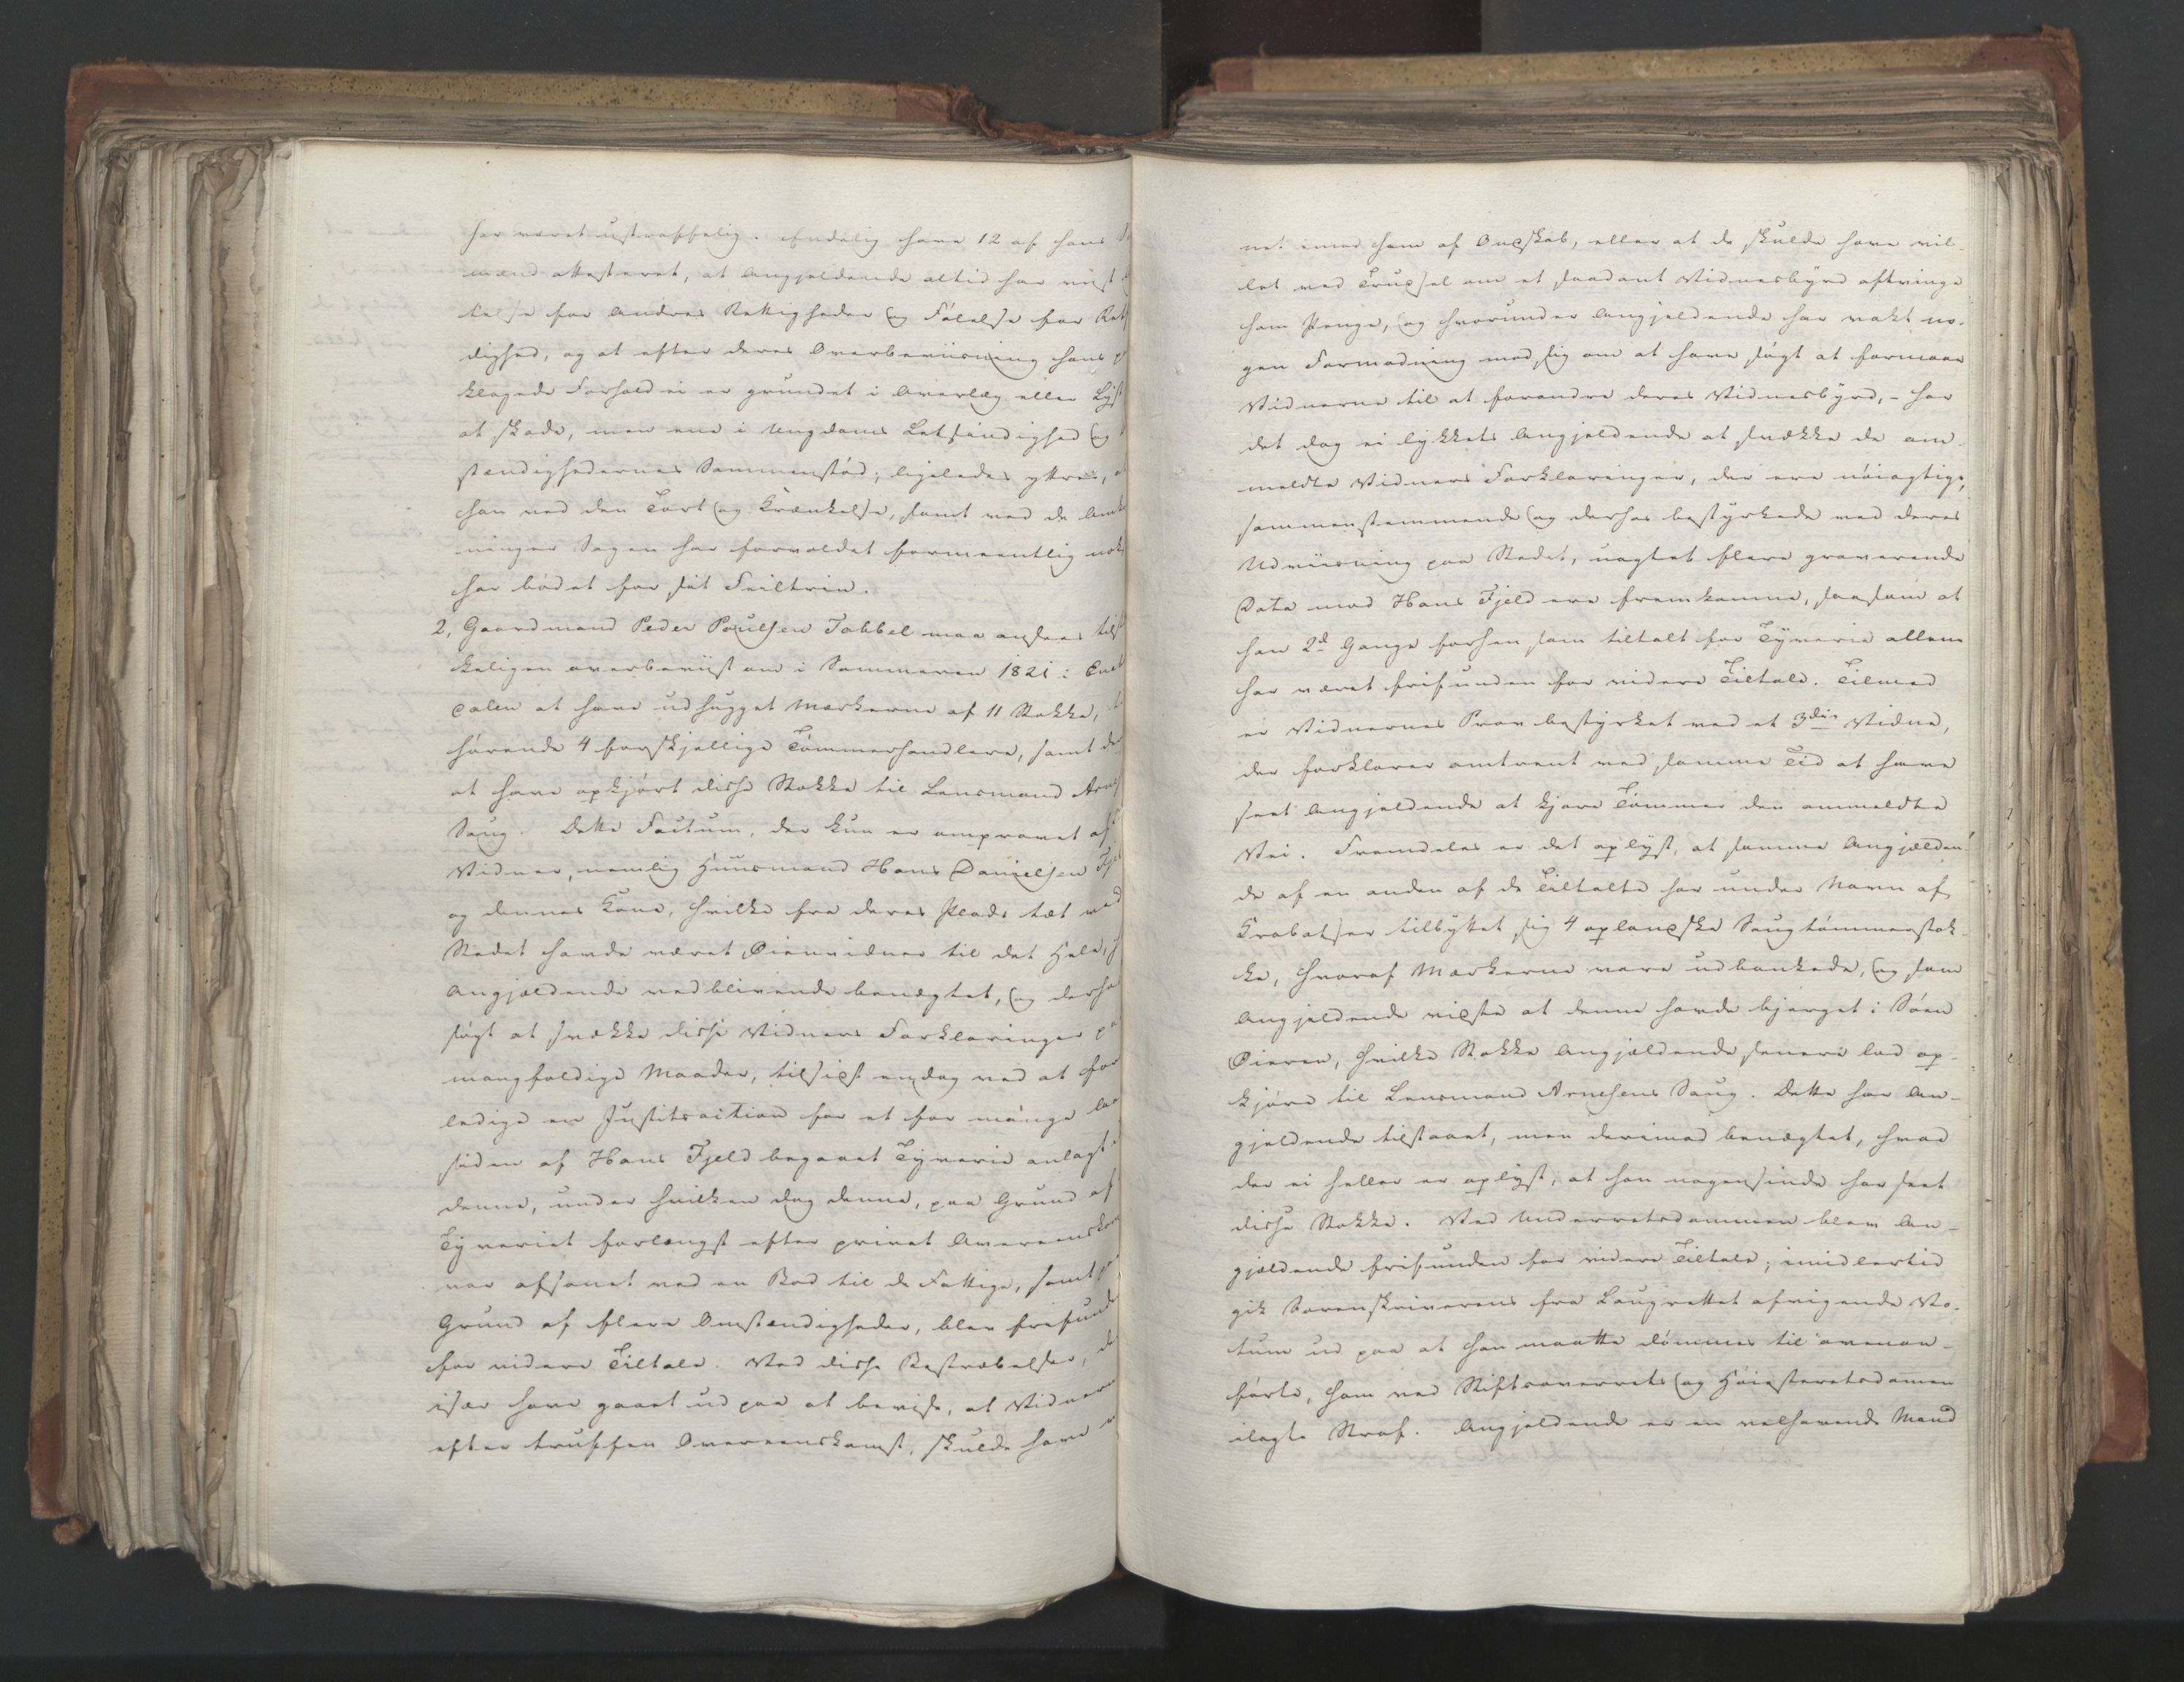 har været ustraffelig. Endelig have 12 af hans
mænd attesteret, at Angjeldende altid har viist
telse for Andres Rettigheder og Følelse for Ret
dighed, og at efter deres Overbeviisning hans
klagede Forhold ei er grundet i Overlæg eller Lyst
at skade, men ene i Ungdoms Letsindighed og
stændighedernes Sammenstød; ligeledes yttres,
han ved den Tort og Krænkelse, samt ved de
ninger Sagen har forvoldet formeentlig nok
har bødet for sit Feiltrin.
2, Gaardmand Peder Poulsen Tobbel maa ansees
keligen overbeviist om i Sommeren 1821 i
at have udhugget Mærkerne af 11 Stokke,
hørende 4 forskjellige Tømmerhandlere, samt
at have opkjørt disse Stokke til Lensmand
Saug. Dette Factum, der kun er omprovet af
Vidner, nemlig Huusmand Hans Danielsen
og dennes Kone, hvilke fra deres Plads tæt ved
Stedet havde været Øienvidner til det Hele,
Angjældende vedblivende benægtet, og derhos
søgt at svække disse Vidners Forklaringer
mangfoldige Maader, tilsidst endog ved at for
ledige en Justitsaction for et for mange
siden af Hans Fjeld begaaet Tyverie anlagt
denne, under hvilken dog denne, paa Grund af
Tyveriet forlængst efter privat Overeenskom
var afsonet ved en Bod til de Fattige, samt
Grund af flere Omstændigheder, blev frifunde
for videre Tiltale. Ved disse Bestræbelser,
især have gaaet ud paa at bevise, at Vidnerne
efter truffen Overeenskomst, skulde have
net imod ham af Ondskab, eller at de skulde have vil-
let ved Trudsel om et saadant Vidnesbyrd aftvinge
ham Penge, og hvorunder Angjeldende har vakt no-
gen Formodning mod sig om at have søgt at formaae
Vidnerne til at forandre deres Vidnesbyrd, – har
det dog ei lykkets Angjeldende at svække de om-
meldte Vidners Forklaringer, der ere nøiagtige,
sammenstemmende og derhos bestyrkede ved deres
Udviisning paa Stedet, uagtet flere graverende
Data mod Hans Fjeld ere fremkomne, saasom at
han 2de Gange forhen som tiltalt for Tyverie allene
har været frifunden for videre Tiltale. Tilmed
er Vidnernes Prov bestyrket ved et 3die Vidne,
der forklarer omtrent ved samme Tid at have
seet Angjeldende at kjøre Tømmer den ommeldte
Vei. Fremdeles er det oplyst, at samme Angjælden-
de af en anden af de Tiltalte har under Navn af
Krabatser tilbyttet sig 4 oplandske Saugtømmerstok-
ke, hvoraf Mærkerne vare udbankede, og som
Angjeldende vidste at denne havde bjerget i Søen
Øieren, hvilke Stokke Angjældende senere lod op-
kjøre til Lensmand Arnesens Saug. Dette har An-
gjeldende tilstaaet, men derimod benægtet, hvad
der ei heller er oplyst, at han nogensinde har seet
disse Stokke. Ved Underretsdommen blev An-
gjældende frifunden for videre Tiltale; imidlertid
gik Sorenskriverens fra Laugrettet afvigende Vo-
tum ud paa at han maatte dømmes til ovenan-
førte, ham ved Stiftsoverrets og Høiesteretsdommen
ilagte Straf. Angjeldende er en velhavende Mand